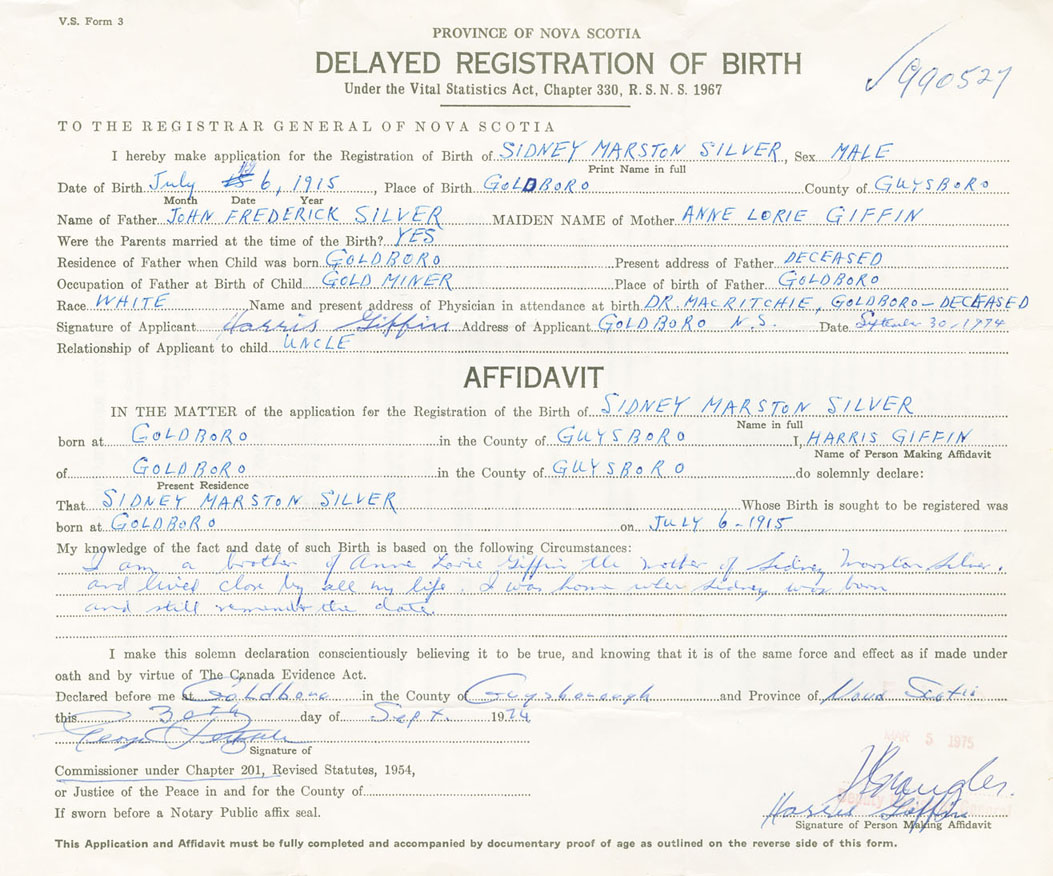 V.S. Form 3
PROVINCE OF NOVA SCOTIA
DELAYED REGISTRATION OF BIRTH
Under the Vital Statistics Act, Chapter 330, R.S.N.S. 1967
990527
TO THE REGISTRAR GENERAL OF NOVA SCOTIA
I hereby make application for the Registration of Birth of SIDNEY MARSTON SILVER, Sex MALE
Print Name in full
Date of Birth July 6, 1915, Place of Birth GOLDBORO County of GUYSBORO
Month Date Year
Name of Father JOHN FREDERICK SILVER MAIDEN NAME of Mother ANNE LORIE GIFFIN
Were the Parents married at the time of the Birth? YES
Residence of Father when Child was born GOLDBORO Present address of Father DECEASED
Occupation of Father at Birth of Child GOLD MINER Place of birth of Father GOLDBORO
Race WHITE Name and present address of Physician in attendance at birth DR. MACRITCHIE, GOLDBORO - DECEASED
Signature of Applicant Harris Giffin Address of Applicant GOLDBORO N.S. Date September 30, 1974
Relationship of Applicant to child UNCLE
AFFIDAVIT
IN THE MATTER of the application for the Registration of the Birth of SIDNEY MARSTON SILVER
Name in full
born at GOLDBORO in the County of GUYSBORO I, HARRIS GIFFIN
Name of Person Making Affidavit
of GOLDBORO in the County of GUYSBORO do solemnly declare:
Present Residence
That SIDNEY MARSTON SILVER Whose Birth is sought to be registered was
born at GOLDBORO on JULY 6 - 1915
My knowledge of the fact and date of such Birth is based on the following Circumstances:
I am a brother of Anne Lorie Giffin the mother of Sidney Marston Silver.
and lived close by all my life. I was home when Sidney was born
and still remember the date.
I make this solemn declaration conscientiously believing it to be true, and knowing that it is of the same force and effect as if made under
oath and by virtue of The Canada Evidence Act.
Declared before me at Goldboro in the County of Guysborough and Province of Nova Scotia
this 30th day of Sept. 1974
Signature of
Commissioner under Chapter 201, Revised Statutes, 1954,
or Justice of the Peace in and for the County of
If sworn before a Notary Public affix seal.
MAR 5 1975
Deputy
Harris Giffin
Signature of Person Making Affidavit
This Application and Affidavit must be fully completed and accompanied by documentary proof of age as outlined on the reverse side of this form.